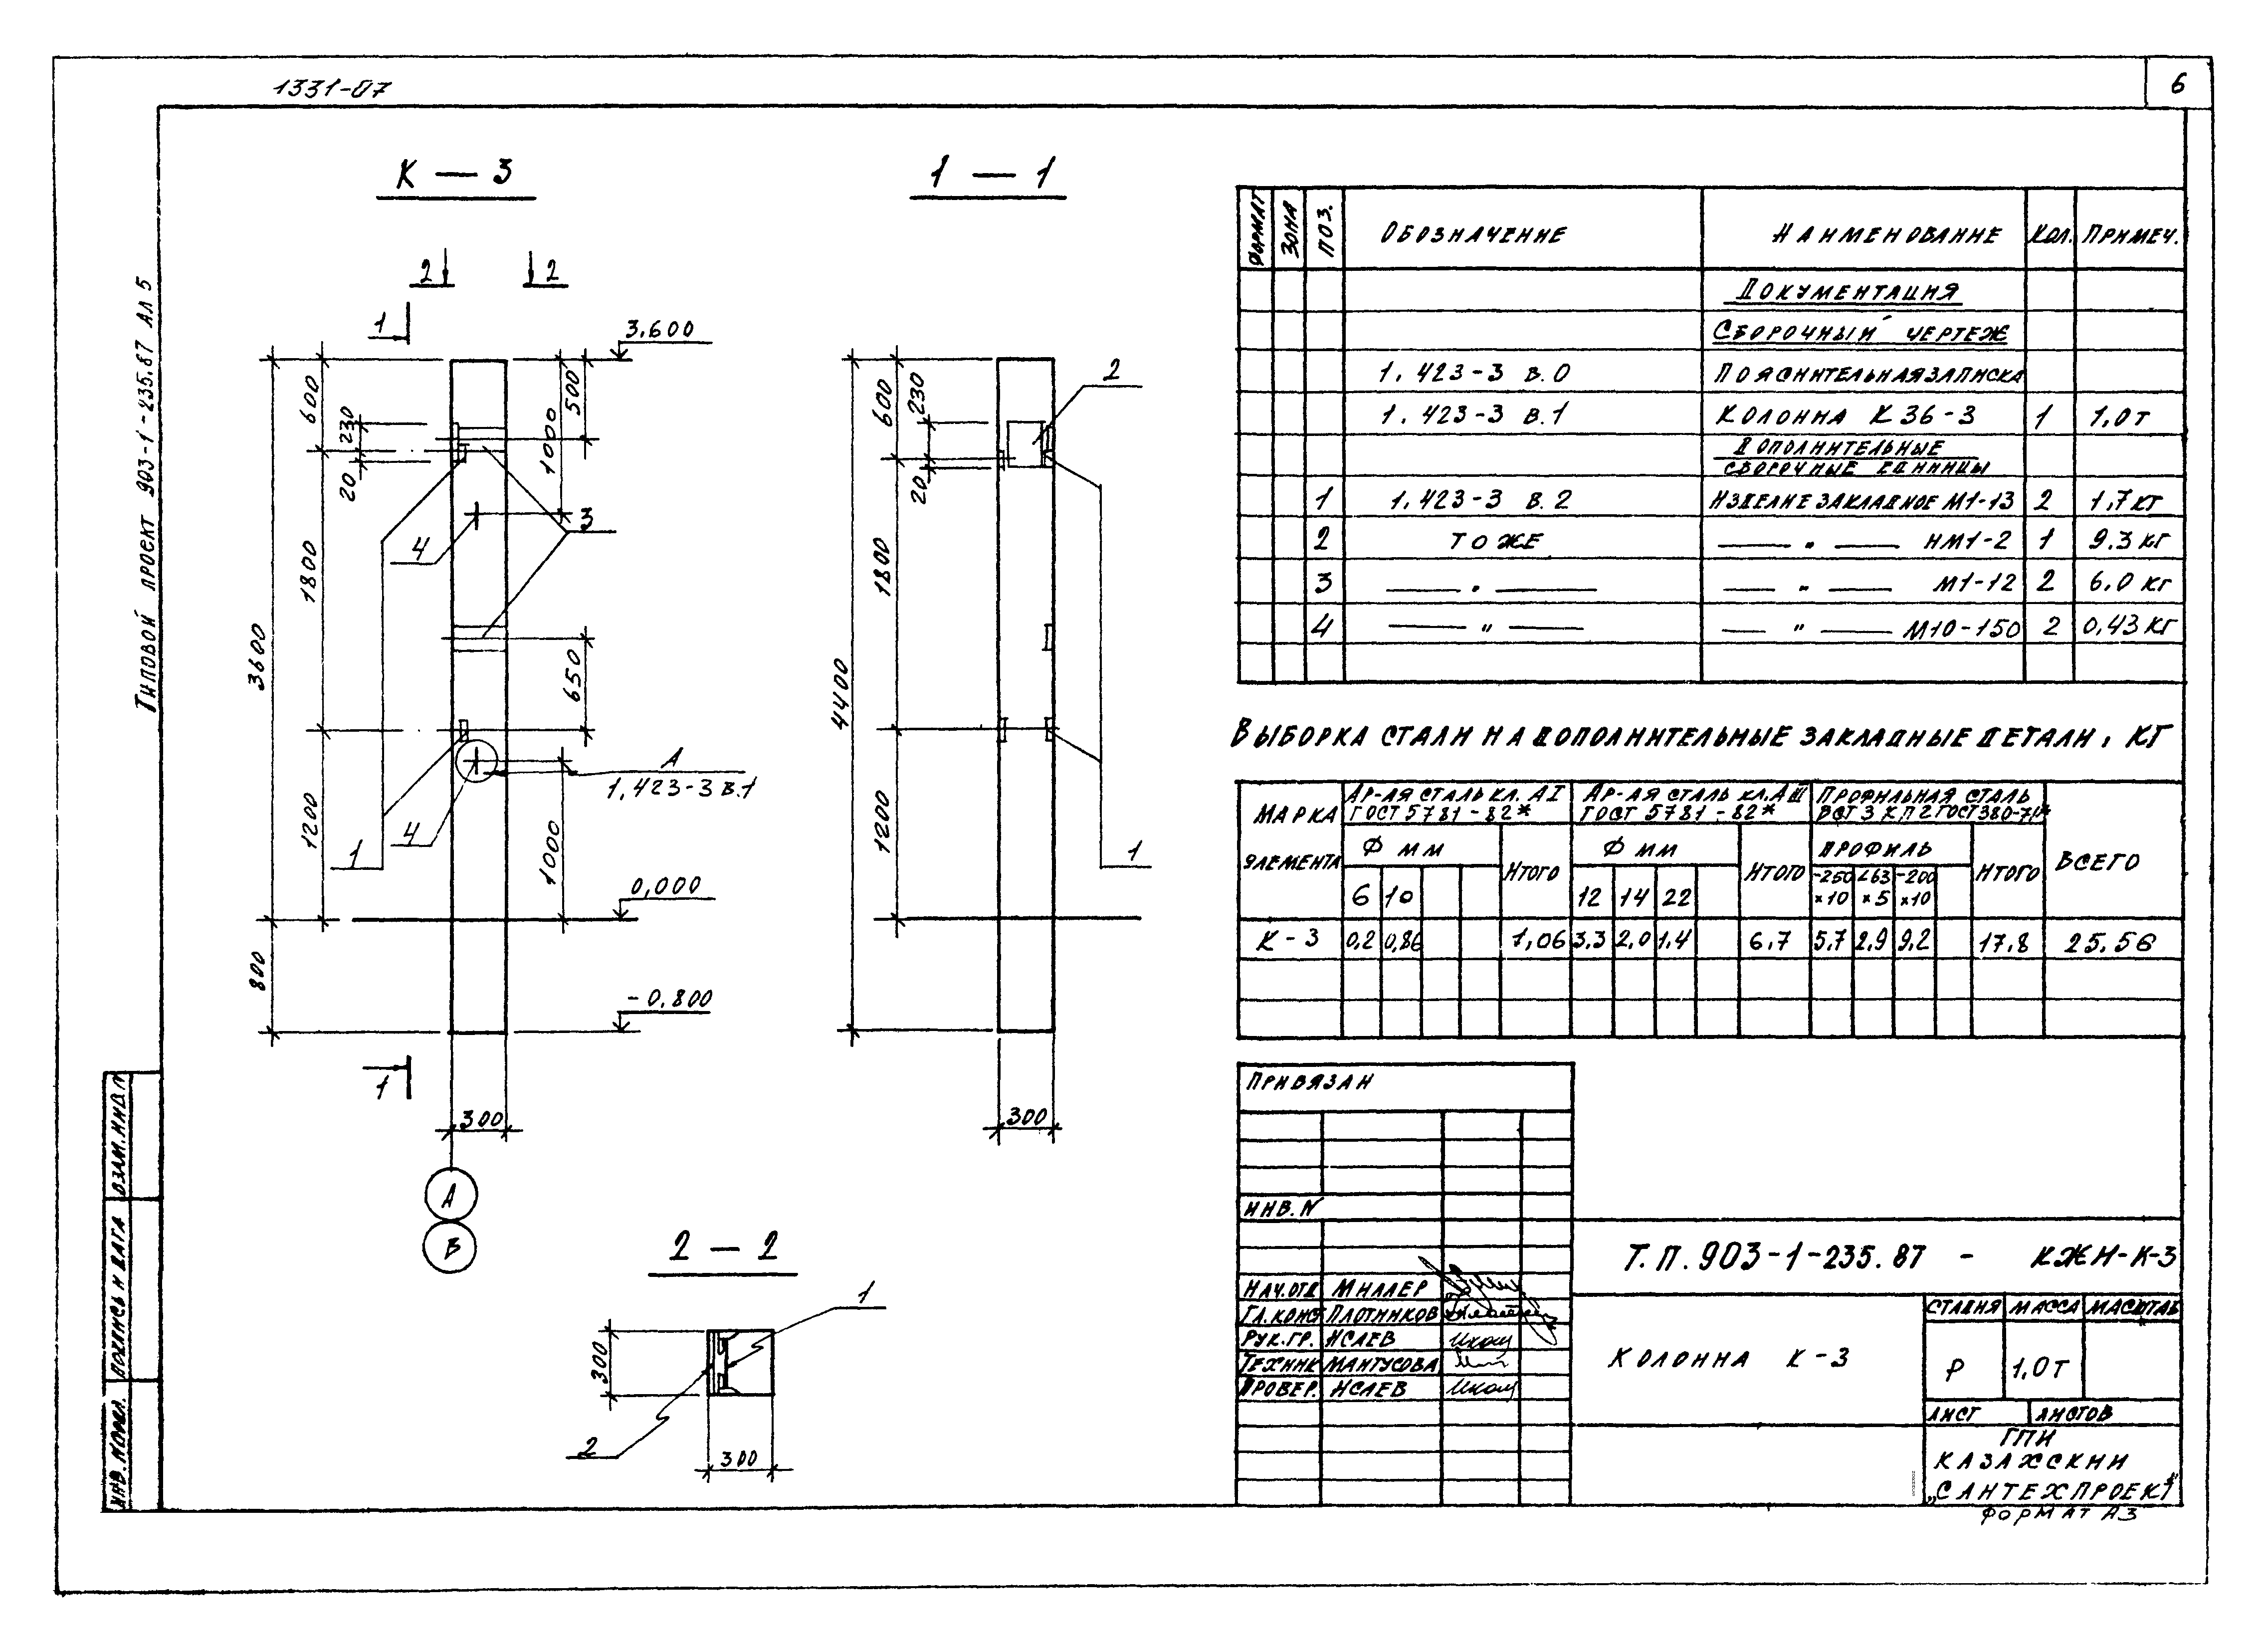 1331-07
6
Типовой проект 903-1-235.87 Ал 5
К — 3
1 — 1
2 2
1
3.600
600
230
20
500
1000
3
4
1800
3600
650
А
1.423-3 в.1
1200
1
4
1000
0,000
800
-0.800
1
300
А
В
600
230
20
2
1800
4400
1200
1
300
2 — 2
1
300
2
300
ФОРМАТ ЗОНА ПОЗ. ОБОЗНАЧЕНИЕ НАИМЕНОВАНИЕ КОЛ. ПРИМЕЧ.
ДОКУМЕНТАЦИЯ
СБОРОЧНЫЙ ЧЕРТЕЖ
1.423-3 В.0 ПОЯСНИТЕЛЬНАЯ ЗАПИСКА
1.423-3 В.1 КОЛОННА К 36-3 1 1,0 Т
ДОПОЛНИТЕЛЬНЫЕ
СБОРОЧНЫЕ ЕДИНИЦЫ
1 1.423-3 В.2 ИЗДЕЛИЕ ЗАКЛАДНОЕ М1-13 2 1,7 КГ
2 ТО ЖЕ — " — НМ1-2 1 9.3 КГ
3 — " — — " — М1-12 2 6.0 КГ
4 — " — — " — М10-150 2 0,43 КГ
ВЫБОРКА СТАЛИ НА ДОПОЛНИТЕЛЬНЫЕ ЗАКЛАДНЫЕ ДЕТАЛИ, КГ
МАРКА ЭЛЕМЕНТА
АР-АЯ СТАЛЬ КЛ. АI
ГОСТ 5781-82*
АР-АЯ СТАЛЬ КЛ. АIII
ГОСТ 5781-82*
ПРОФИЛЬНАЯ СТАЛЬ
ВСТ 3 КП2 ГОСТ 380-71*
ВСЕГО
Ф ММ ИТОГО Ф ММ ИТОГО ПРОФИЛЬ ИТОГО
6 10 12 14 22 -250×10 ∠63×5 -200×10
К-3 0,2 0,86 1,06 3.3 2,0 1.4 6.7 5.7 2,9 9,2 17.8 25.56
ПРИВЯЗАН
ИНВ. N
НАЧ.ОТД МИЛЛЕР
ГЛ.КОНСТ ПЛОТНИКОВ
РУК.ГР. ИСАЕВ
ТЕХНИК МАНТУСОВА
ПРОВЕР. ИСАЕВ
Т.П. 903-1-235.87 - КЖИ-К-3
КОЛОННА К-3
СТАДИЯ МАССА МАСШТАБ
Р 1,0 Т
ЛИСТ ЛИСТОВ
ГПИ
КАЗАХСКИЙ
„САНТЕХПРОЕКТ"
ФОРМАТ А3
ИНВ. N ПОДЛ. ПОДПИСЬ И ДАТА ВЗАМ. ИНВ. N